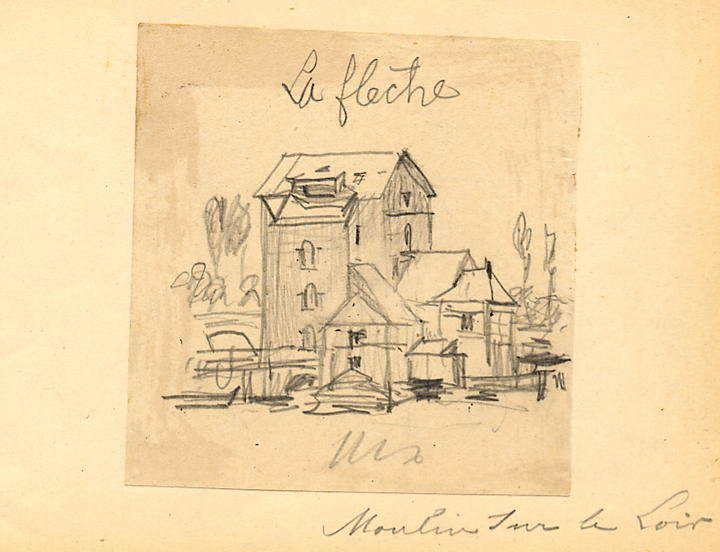 La flèche
Moulin sur le Loir